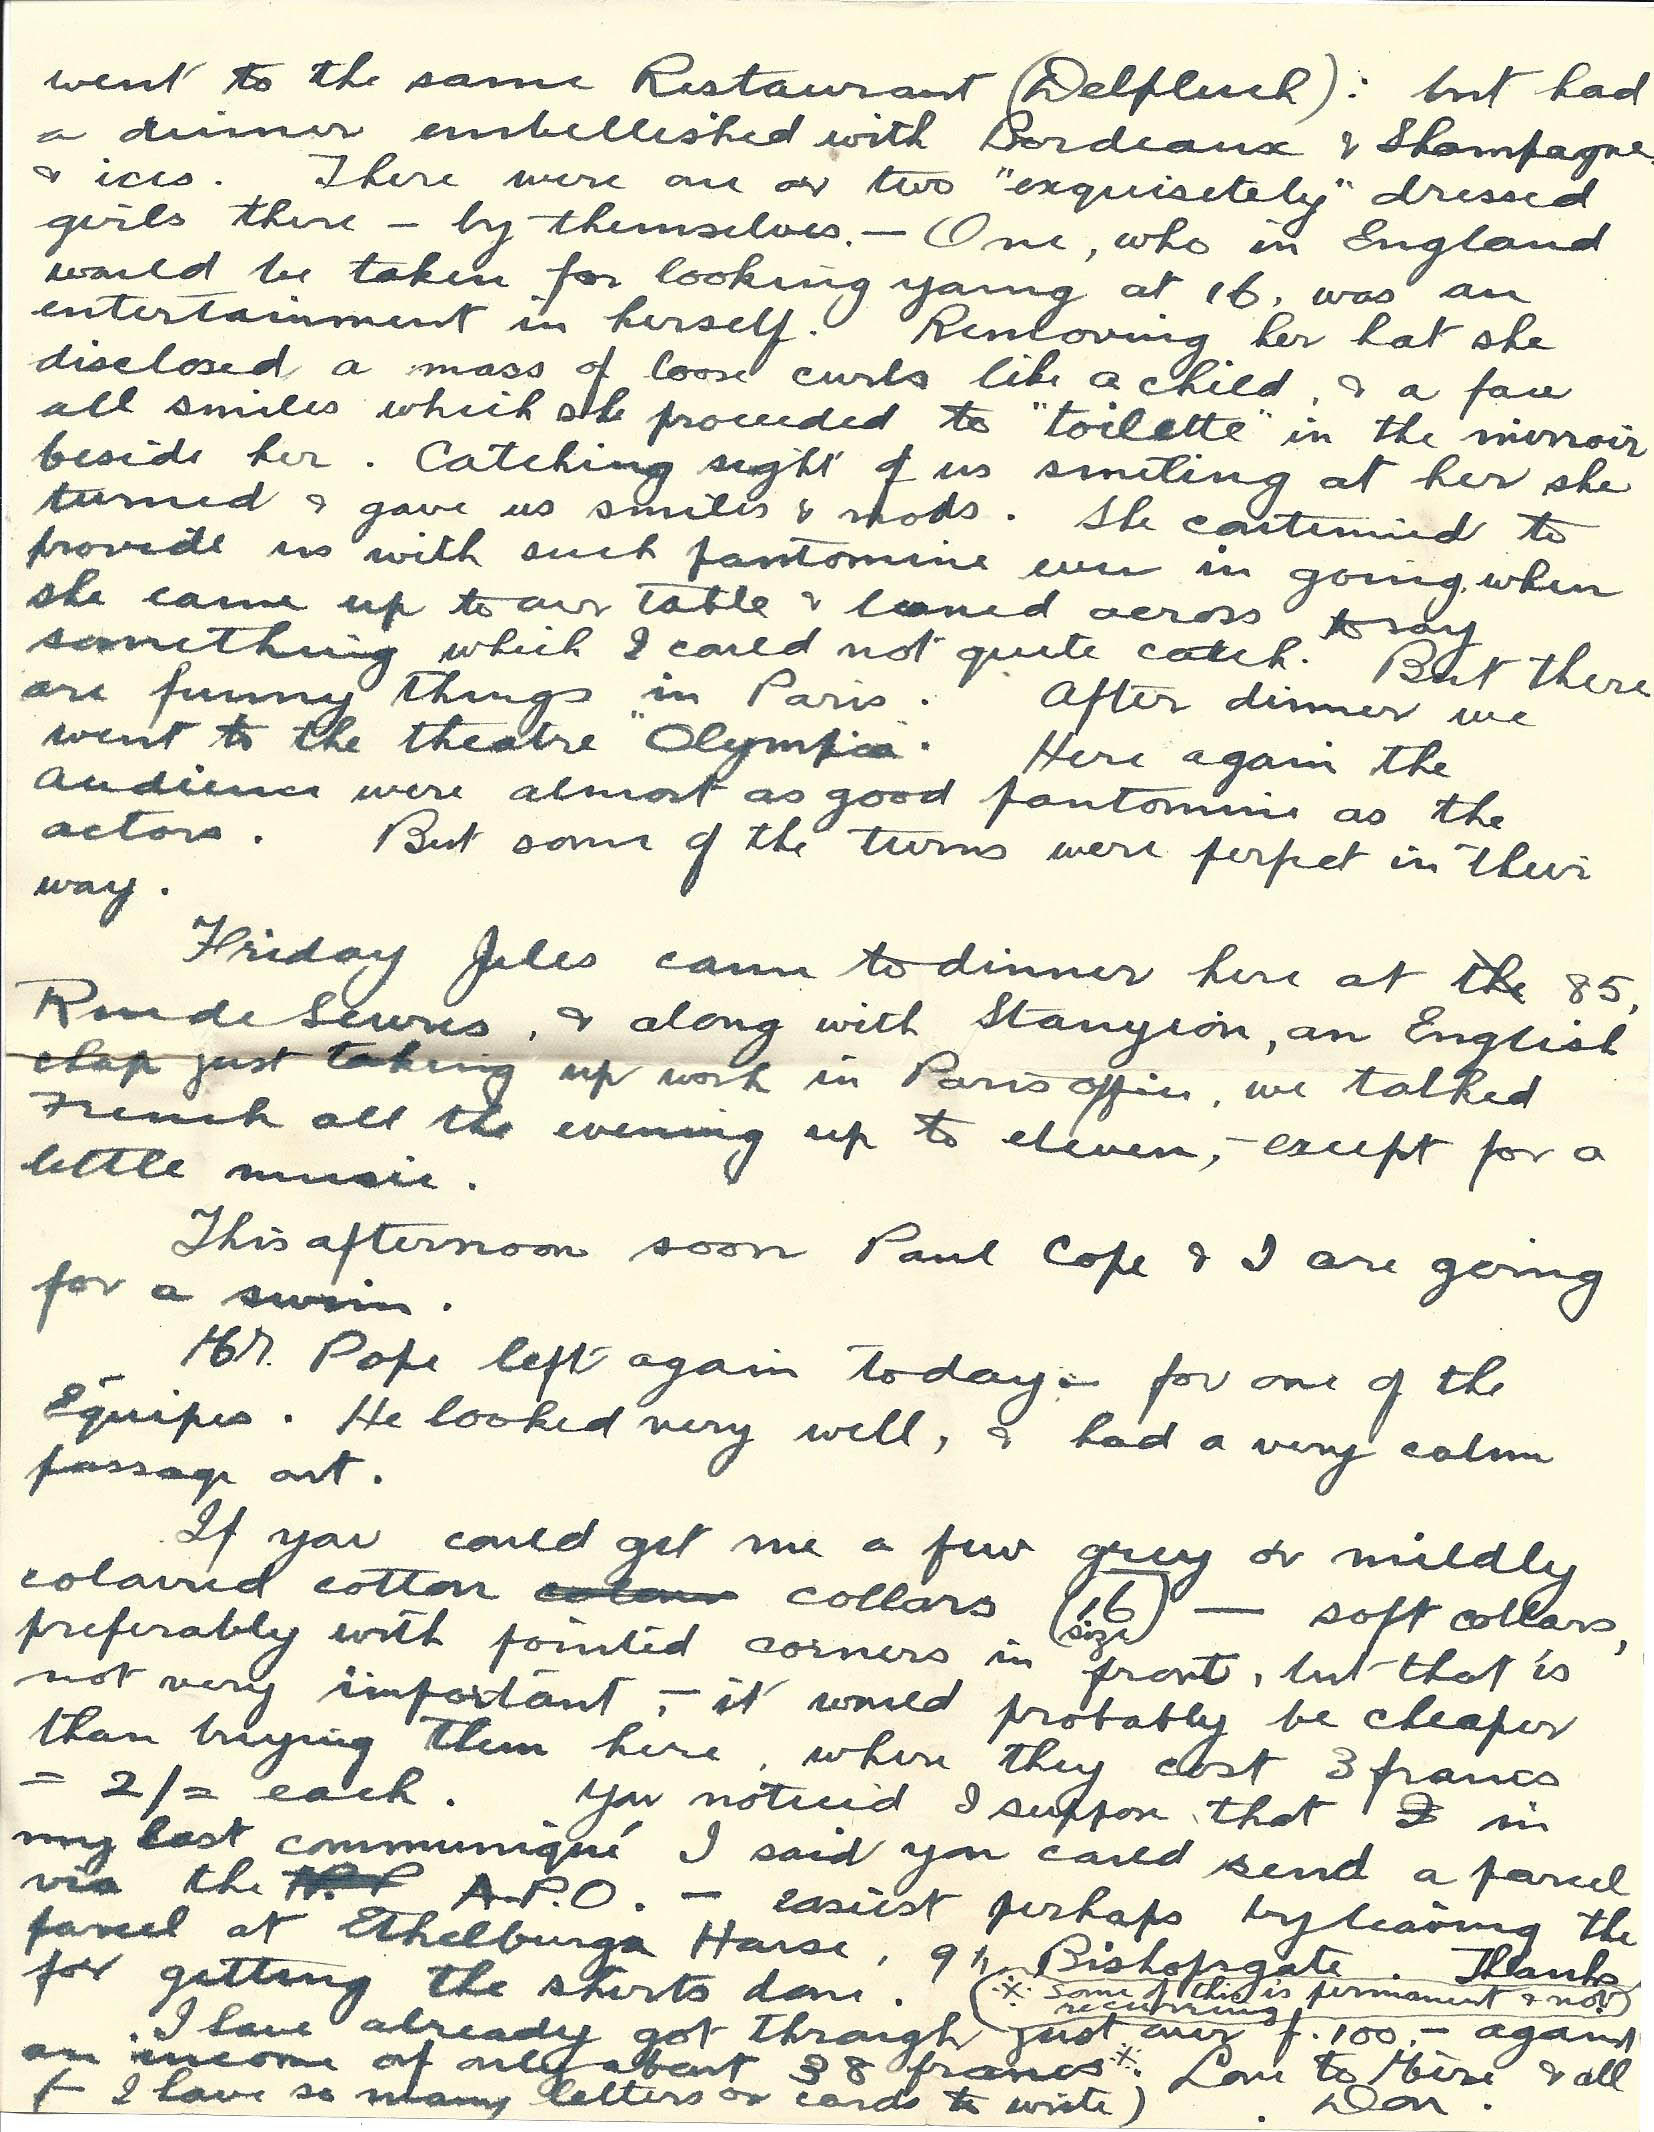 went to the same Restaurant (Delpluch): but had
a dinner embellished with Bordeaux & Shampagne
& ices. There were one or two "exquisetely" dressed
girls there - by themselves. - One, who in England
would be taken for looking young at 16, was an
entertainment in herself. Removing her hat she
disclosed a mass of loose curls like a child, & a face
all smiles which she proceeded to "toilette" in the mirroir
beside her. Catching sight of us smiling at her she
turned & gave us smiles & nods. She continued to
provide us with such pantomine even in going, when
she came up to our table & leaned across to say
something which I could not quite catch. But there
are funny things in Paris. After dinner we
went to the theatre "Olympia". Here again the
audience were almost as good pantomine as the
actors. But some of the turns were perfect in their
way.
Friday Jules came to dinner here at the 85,
Rue de Sevres, & along with Stanyion, an English
chap just taking up work in Paris office, we talked
French all the evening up to eleven, - except for a
little music.
This afternoon soon Paul Cope & I are going
for a swim.
Mr. Pope left again today :- for one of the
Equipes. He looked very well, & had a very calm
passage out.
If you could get me a few grey or mildly
coloured cotton collars (16 size) — soft collars,
preferably with pointed corners in front, but that is
not very important, - it would probably be cheaper
than buying them here, where they cost 3 francs
= 2/= each. You noticed I suppose that I in
my last communiqué I said you could send a parcel
via the A.P.O. - easiest perhaps by leaving the
parcel at Ethelburga House, 91, Bishopsgate. Thanks
for getting the shirts done. (※ Some of this is permanent & not
recurring)
I have already got through just over f.100,- against
an income of only about 38 francs※. Love to Mère & all
(- I have so many letters or cards to write) . Don.